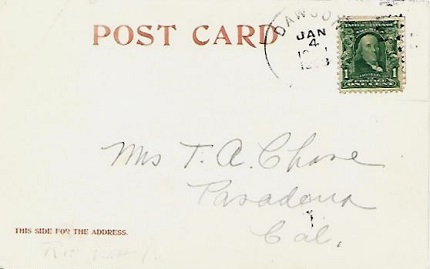 POST CARD
DAWSON
JAN
4
1
ONE CENT
Mrs T. A. Chase
Pasadena
Cal.
THIS SIDE FOR THE ADDRESS.